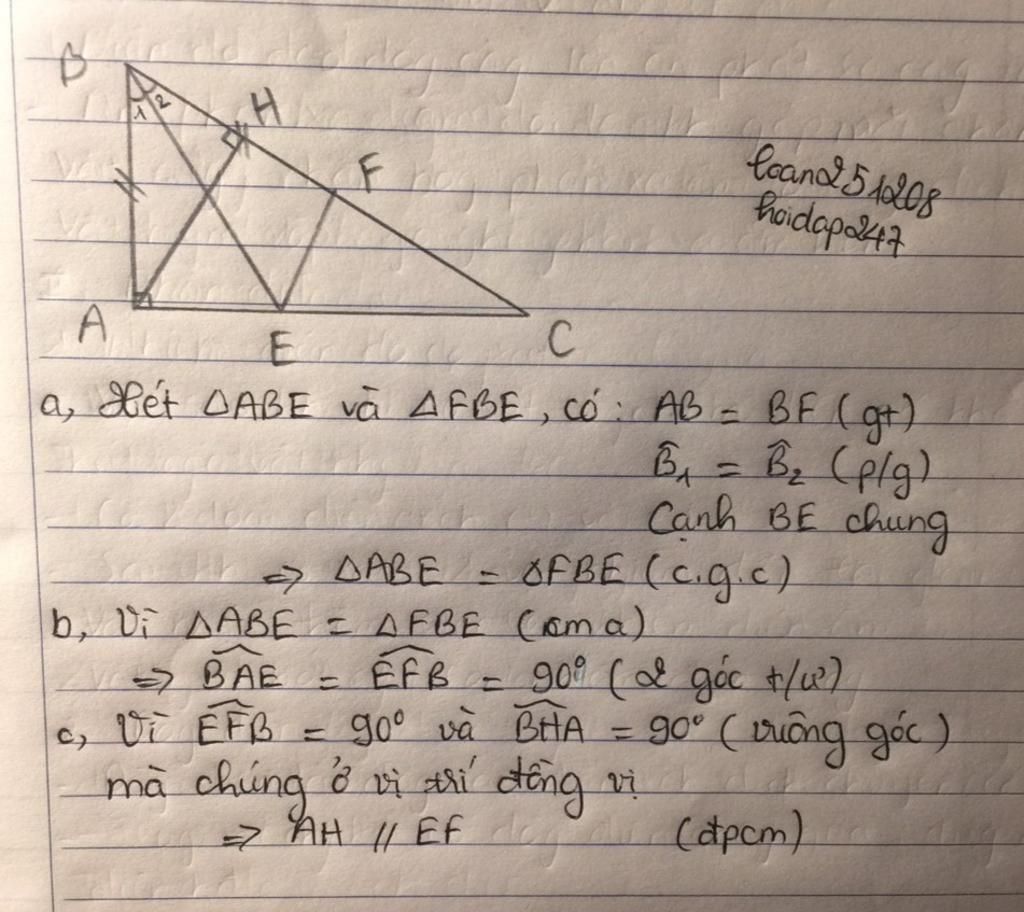 B
1 2
H
F
loan251208
hoidap247
A
E
C
a, Xét ΔABE và ΔFBE, có: AB = BF (gt)
B̂₁ = B̂₂ (p/g)
Cạnh BE chung
=> ΔABE = ΔFBE (c.g.c)
b, Vì ΔABE = ΔFBE (cm a)
=> BAE = EFB = 90° (2 góc t/ư)
c, Vì EFB = 90° và BHA = 90° (vuông góc)
mà chúng ở vị trí đồng vị
=> AH // EF (đpcm)